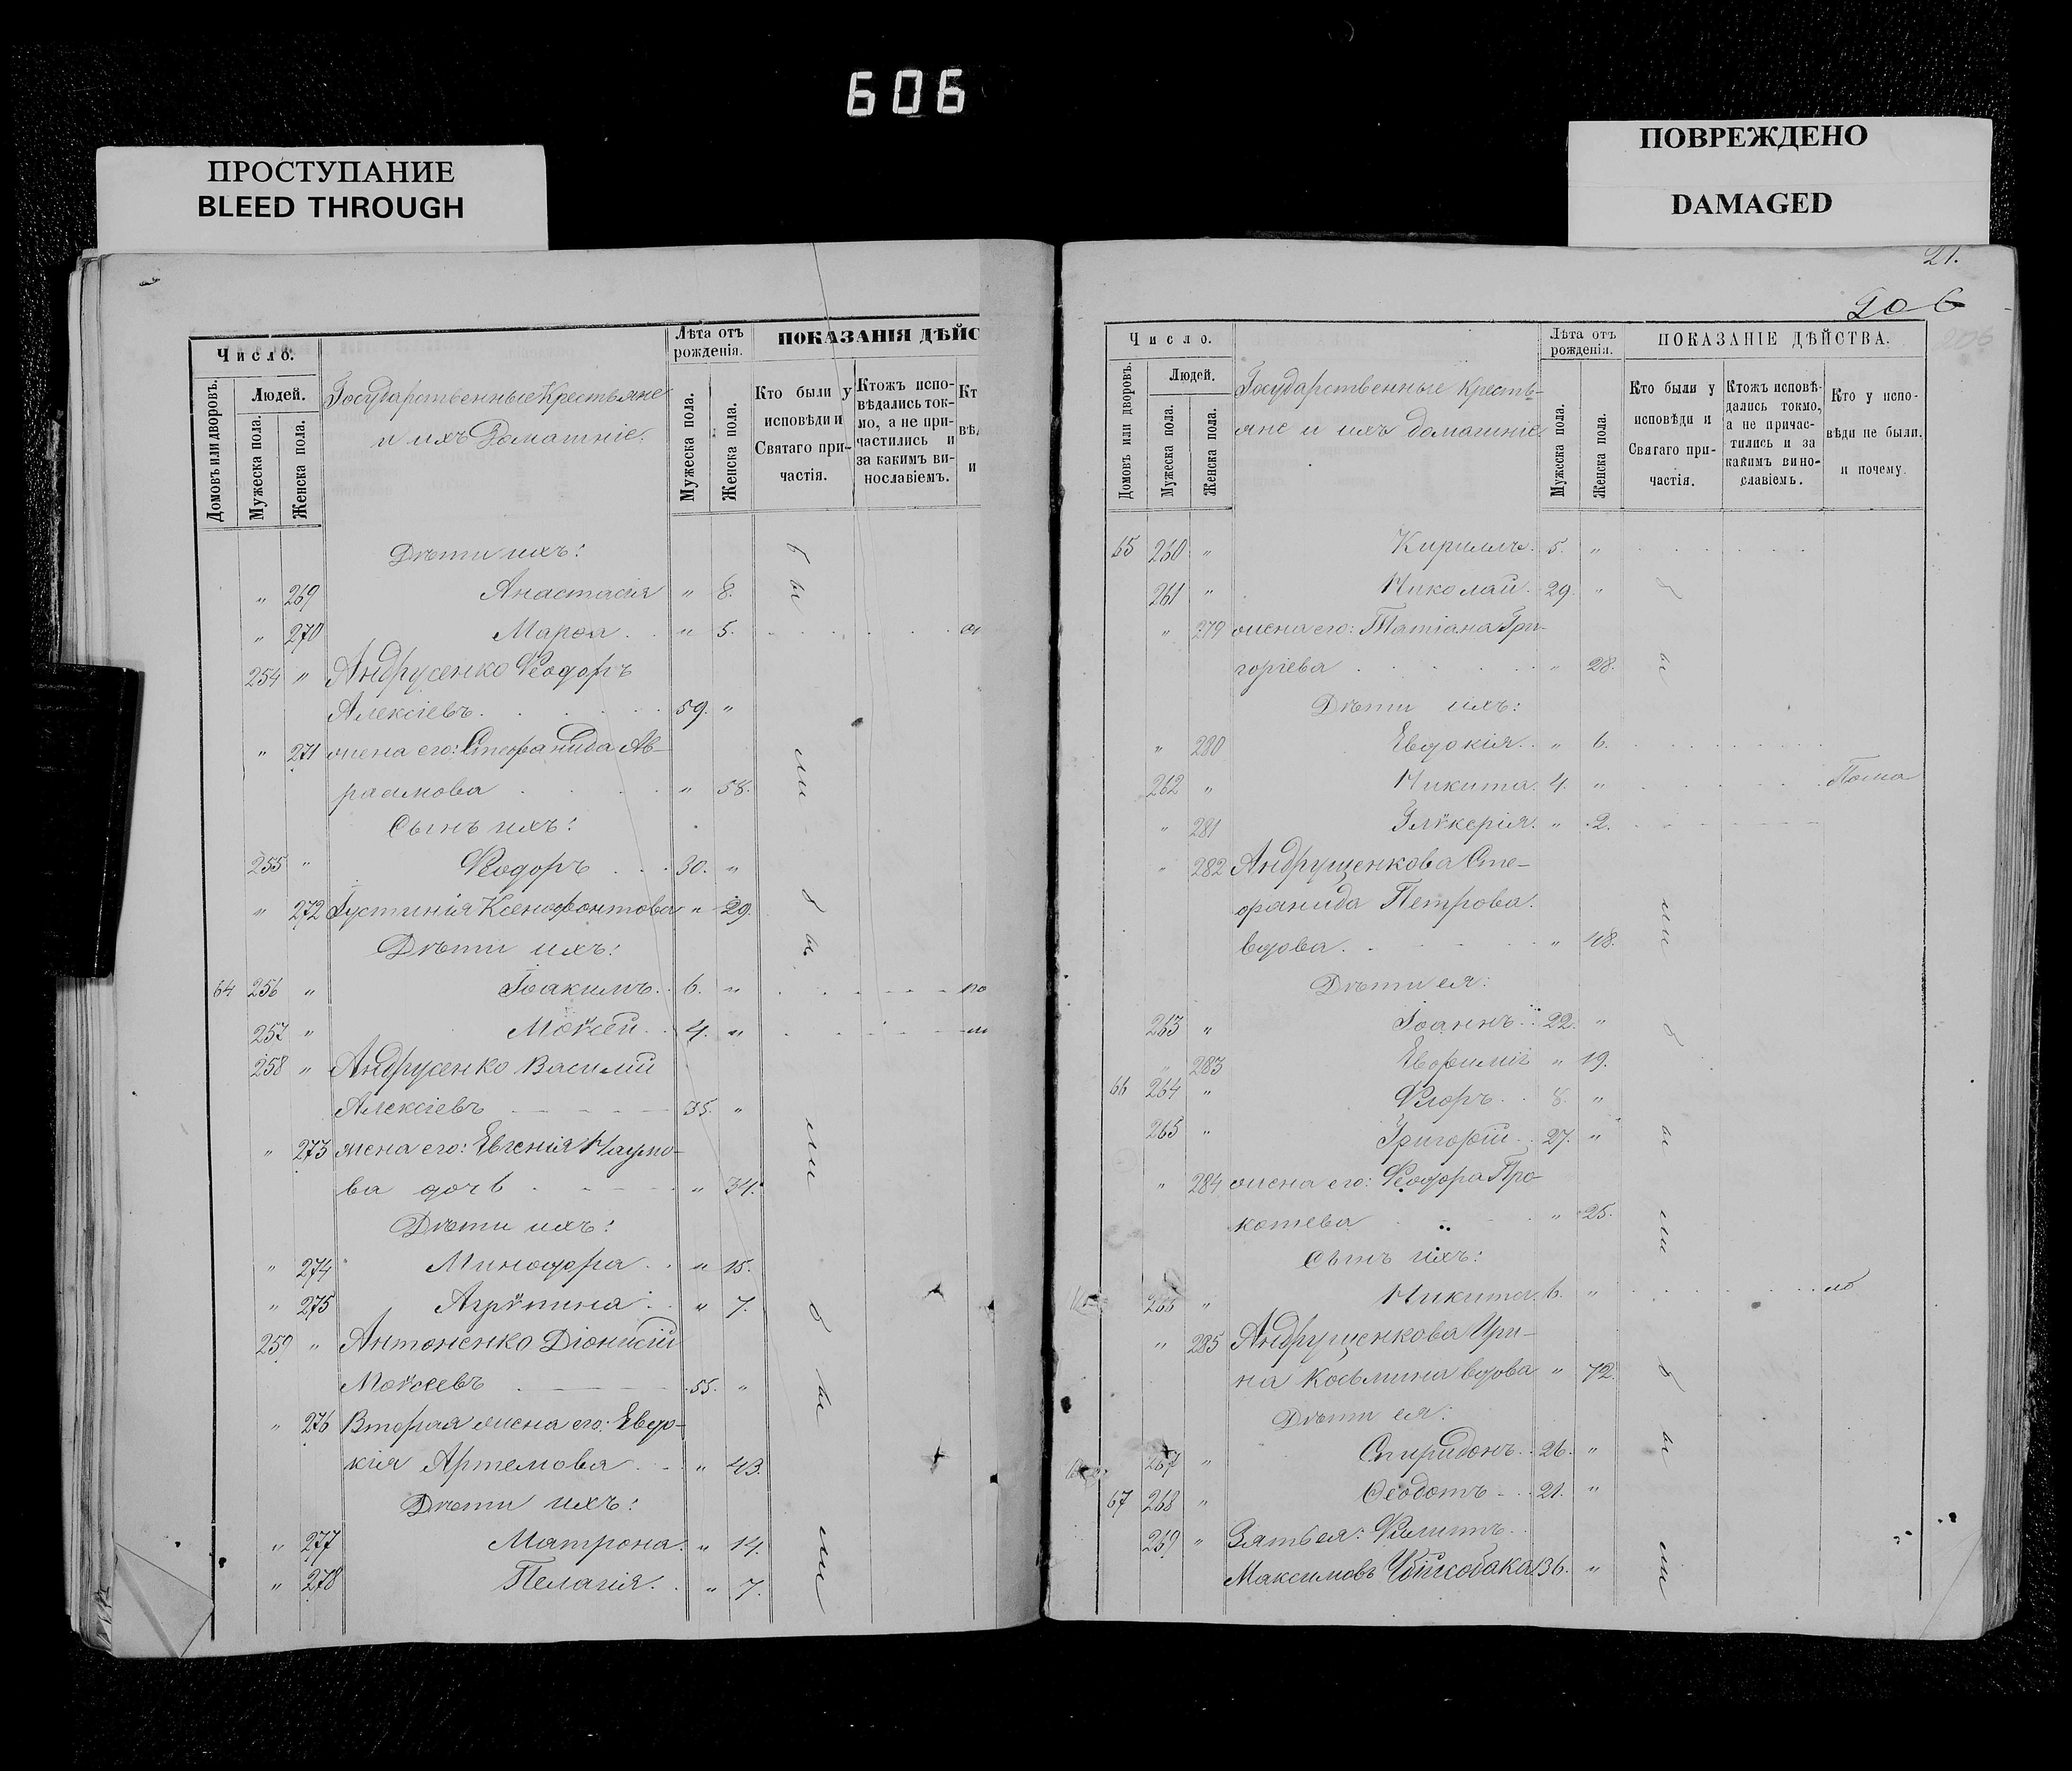 606
ПРОСТУПАНИЕ
BLEED THROUGH
ПОВРЕЖДЕНО
DAMAGED
Число.
Людей.
Домовъ или дворовъ.
Мужеска пола.
Женска пола.
Государственные Крестьяне
и ихъ Домашніе.
Лѣта отъ
рожденія.
Мужеска пола.
Женска пола.
ПОКАЗАНІЯ ДѢЙС
Кто были у
исповѣди и
Святаго при-
частія.
Ктожъ испо-
вѣдались ток-
мо, а не при-
частились и
за какимъ ви-
нославіемъ.
Кт
вѣд
и
Дѣти ихъ:
" 269 Анастасія " 8.
" 270 Марѳа " 5.
254 " Андрусенко Ѳеодоръ
Алексіевъ 59. "
" 271 жена его: Стефанида Ав-
раамова " 58.
Сынъ ихъ:
255 " Ѳеодоръ 30. "
" 272 Іустинія Ксенофонтова " 29.
Дѣти ихъ:
64 256 " Іоакимъ 6. " по
257 " Моѵсей 4. "
258 " Андрусенко Василій
Алексіевъ 35. "
" 273 жена его: Евгенія Наумо-
ва дочь " 34.
Дѣти ихъ:
" 274 Минодора " 15.
" 275 Агрѵпина " 7.
259 " Антоненко Діонисій
Моѵсеевъ 55. "
" 276 Вторая жена его: Евдо-
кія Артемова " 43.
Дѣти ихъ:
" 277 Матрона " 14.
" 278 Пелагія " 7.
бы
ли
бы
ли
бы
ли
21.
206
206
Число.
Людей.
Домовъ или дворовъ.
Мужеска пола.
Женска пола.
Государственные Кресть-
яне и ихъ домашніе.
Лѣта отъ
рожденія.
Мужеска пола.
Женска пола.
ПОКАЗАНІЕ ДѢЙСТВА.
Кто были у
исповѣди и
Святаго при-
частія.
Ктожъ исповѣ-
дались токмо,
а не причас-
тились и за
какимъ вино-
славіемъ.
Кто у испо-
вѣди не были.
и почему.
65 260 " Кириллъ 5. "
261 " Николай 29. "
" 279 жена его: Татіана Гри-
горіева " 28.
Дѣти ихъ:
" 280 Евдокія " 6.
262 " Никита 4. "
" 281 Глѵкерія " 2.
" 282 Андрущенкова Сте-
фанида Петрова
вдова " 48.
Дѣти ея:
263 " Іоаннъ 22. "
" 283 Евфимія " 19.
66 264 " Флоръ 8. "
265 " Григорій 27. "
" 284 жена его: Ѳеодора Про-
копіева " 25.
Сынъ ихъ:
266 " Никита 6. "
" 285 Андрущенкова Ири-
на Косьмина вдова " 72.
Дѣти ея:
267 " Спиридонъ 26. "
67 268 " Ѳеодотъ 21. "
269 " Зять ея: Филиппъ
Максимовъ Убійсобака 36. "
бы
ли
бы
ли
бы
ли